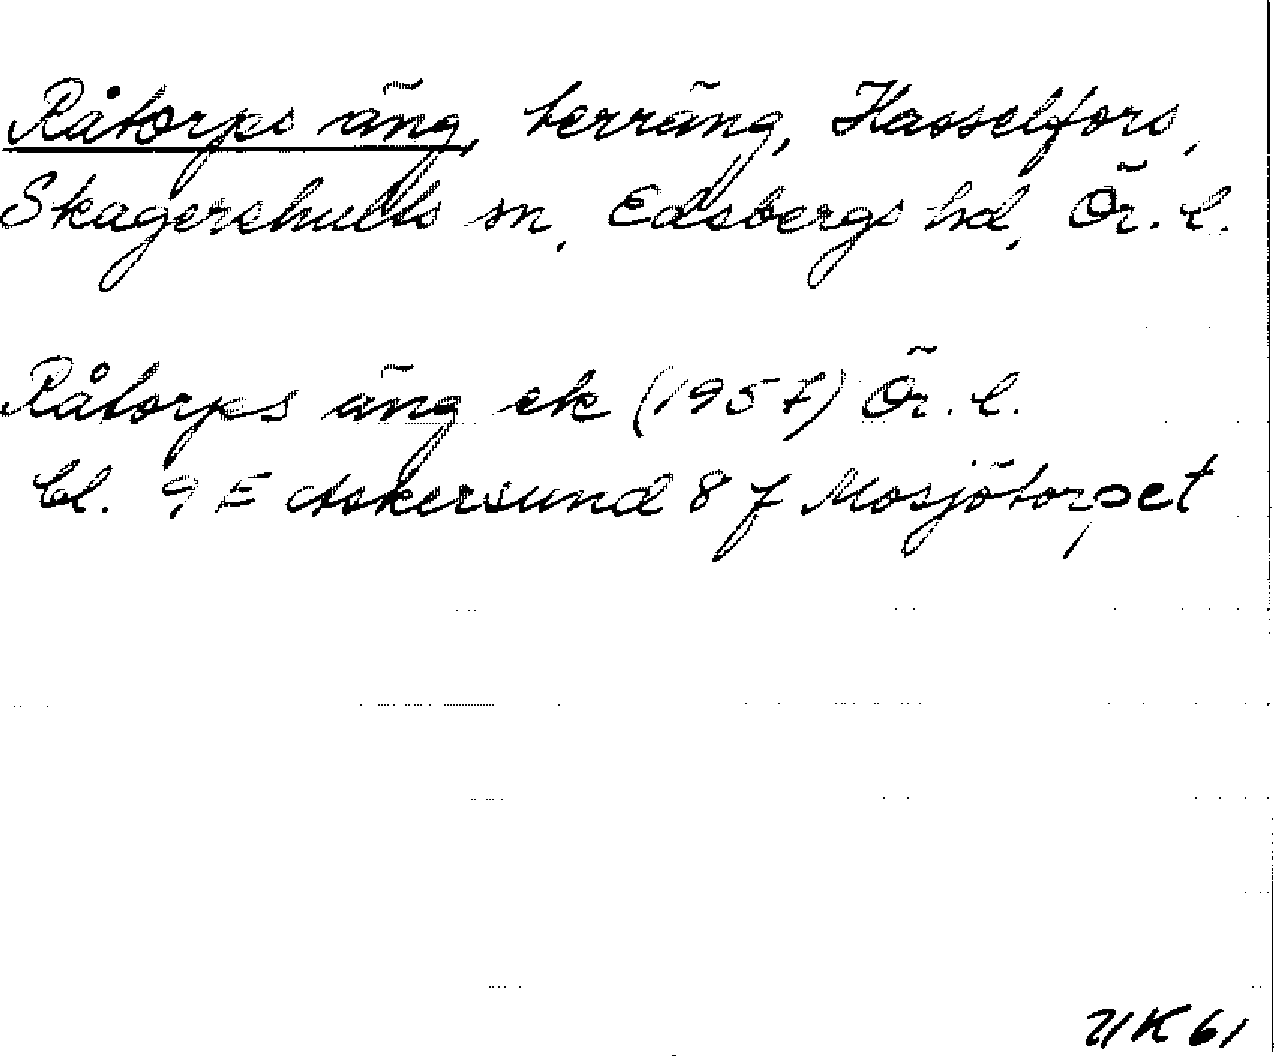 Råtorps äng, terräng, Hasselfors,
Skagershults sn, Edsbergs hd, Ör. l.
Råtorps äng ek (1957) Ör. l.
bl. 9 E Askersund 8 f Mosjötorpet
UK 61